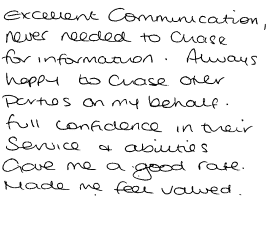 Excellent Communication,
never needed to chase
for information. Always
happy to chase other
Parties on my behalf.
full confidence in their
Service & abilities
Gave me a good rate.
Made me feel valued.